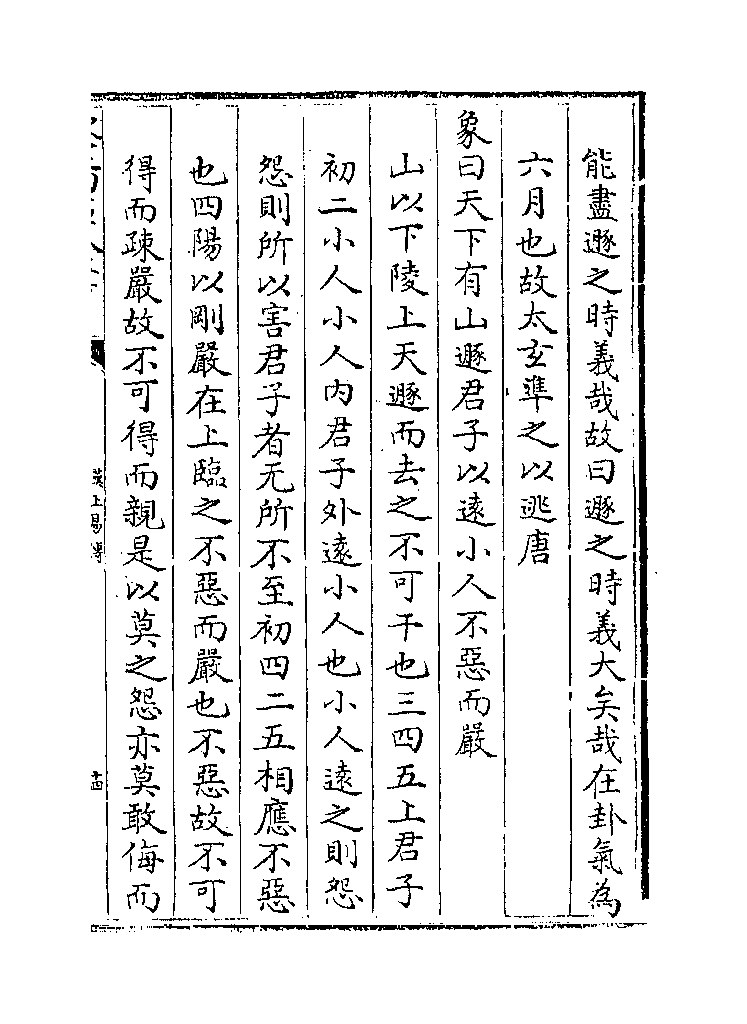 能盡遯之時義哉故曰遯之時義大矣哉在卦氣為
六月也故太玄準之以逃唐
象曰天下有山遯君子以遠小人不惡而嚴
山以下陵上天遯而去之不可干也三四五上君子
初二小人小人内君子外遠小人也小人遠之則怨
怨則所以害君子者无所不至初四二五相應不惡
也四陽以剛嚴在上臨之不惡而嚴也不惡故不可
得而疎嚴故不可得而親是以莫之怨亦莫敢侮而
漢上易傳
十四